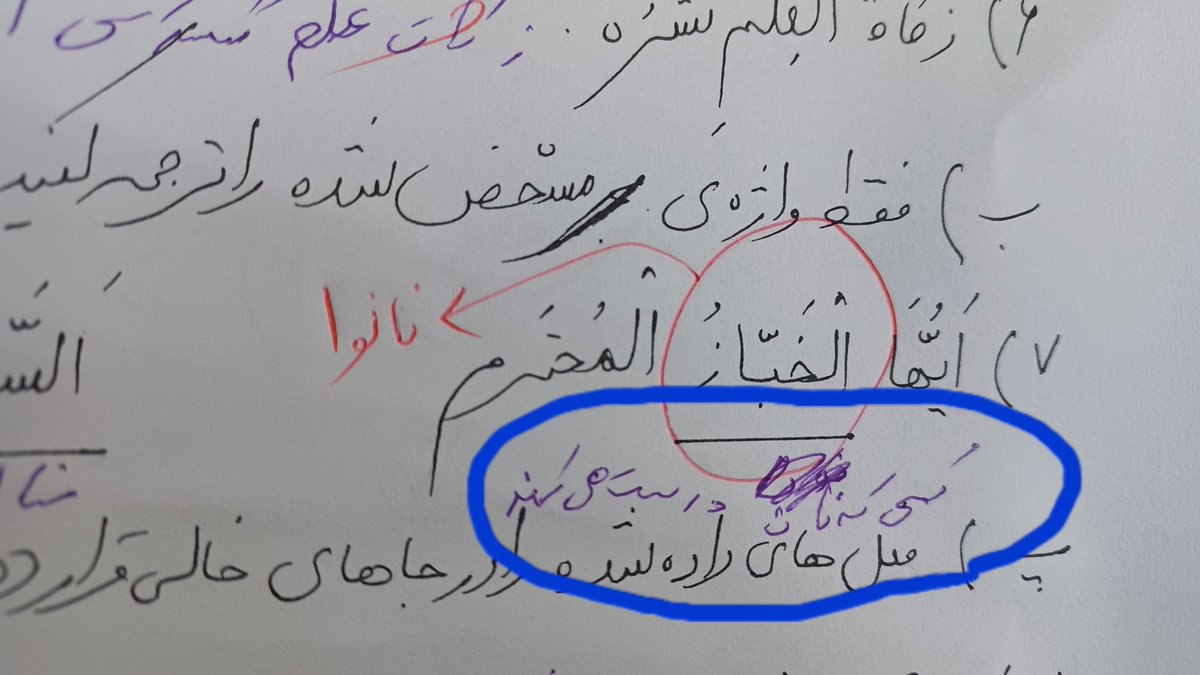 ۶) زَکاةُ الْعِلْمِ نَشْرُهُ . زکات علم
ب) فقط واژه‌ی مشخّص شده را ترجمه کنید
۷) اَیُّهَا الْخَبّازُ الْمُحْتَرَم
نانوا
السَّ
کسی که نان درست می کند
پ) فعل های داده شده را در جاهای خالی قرار ده